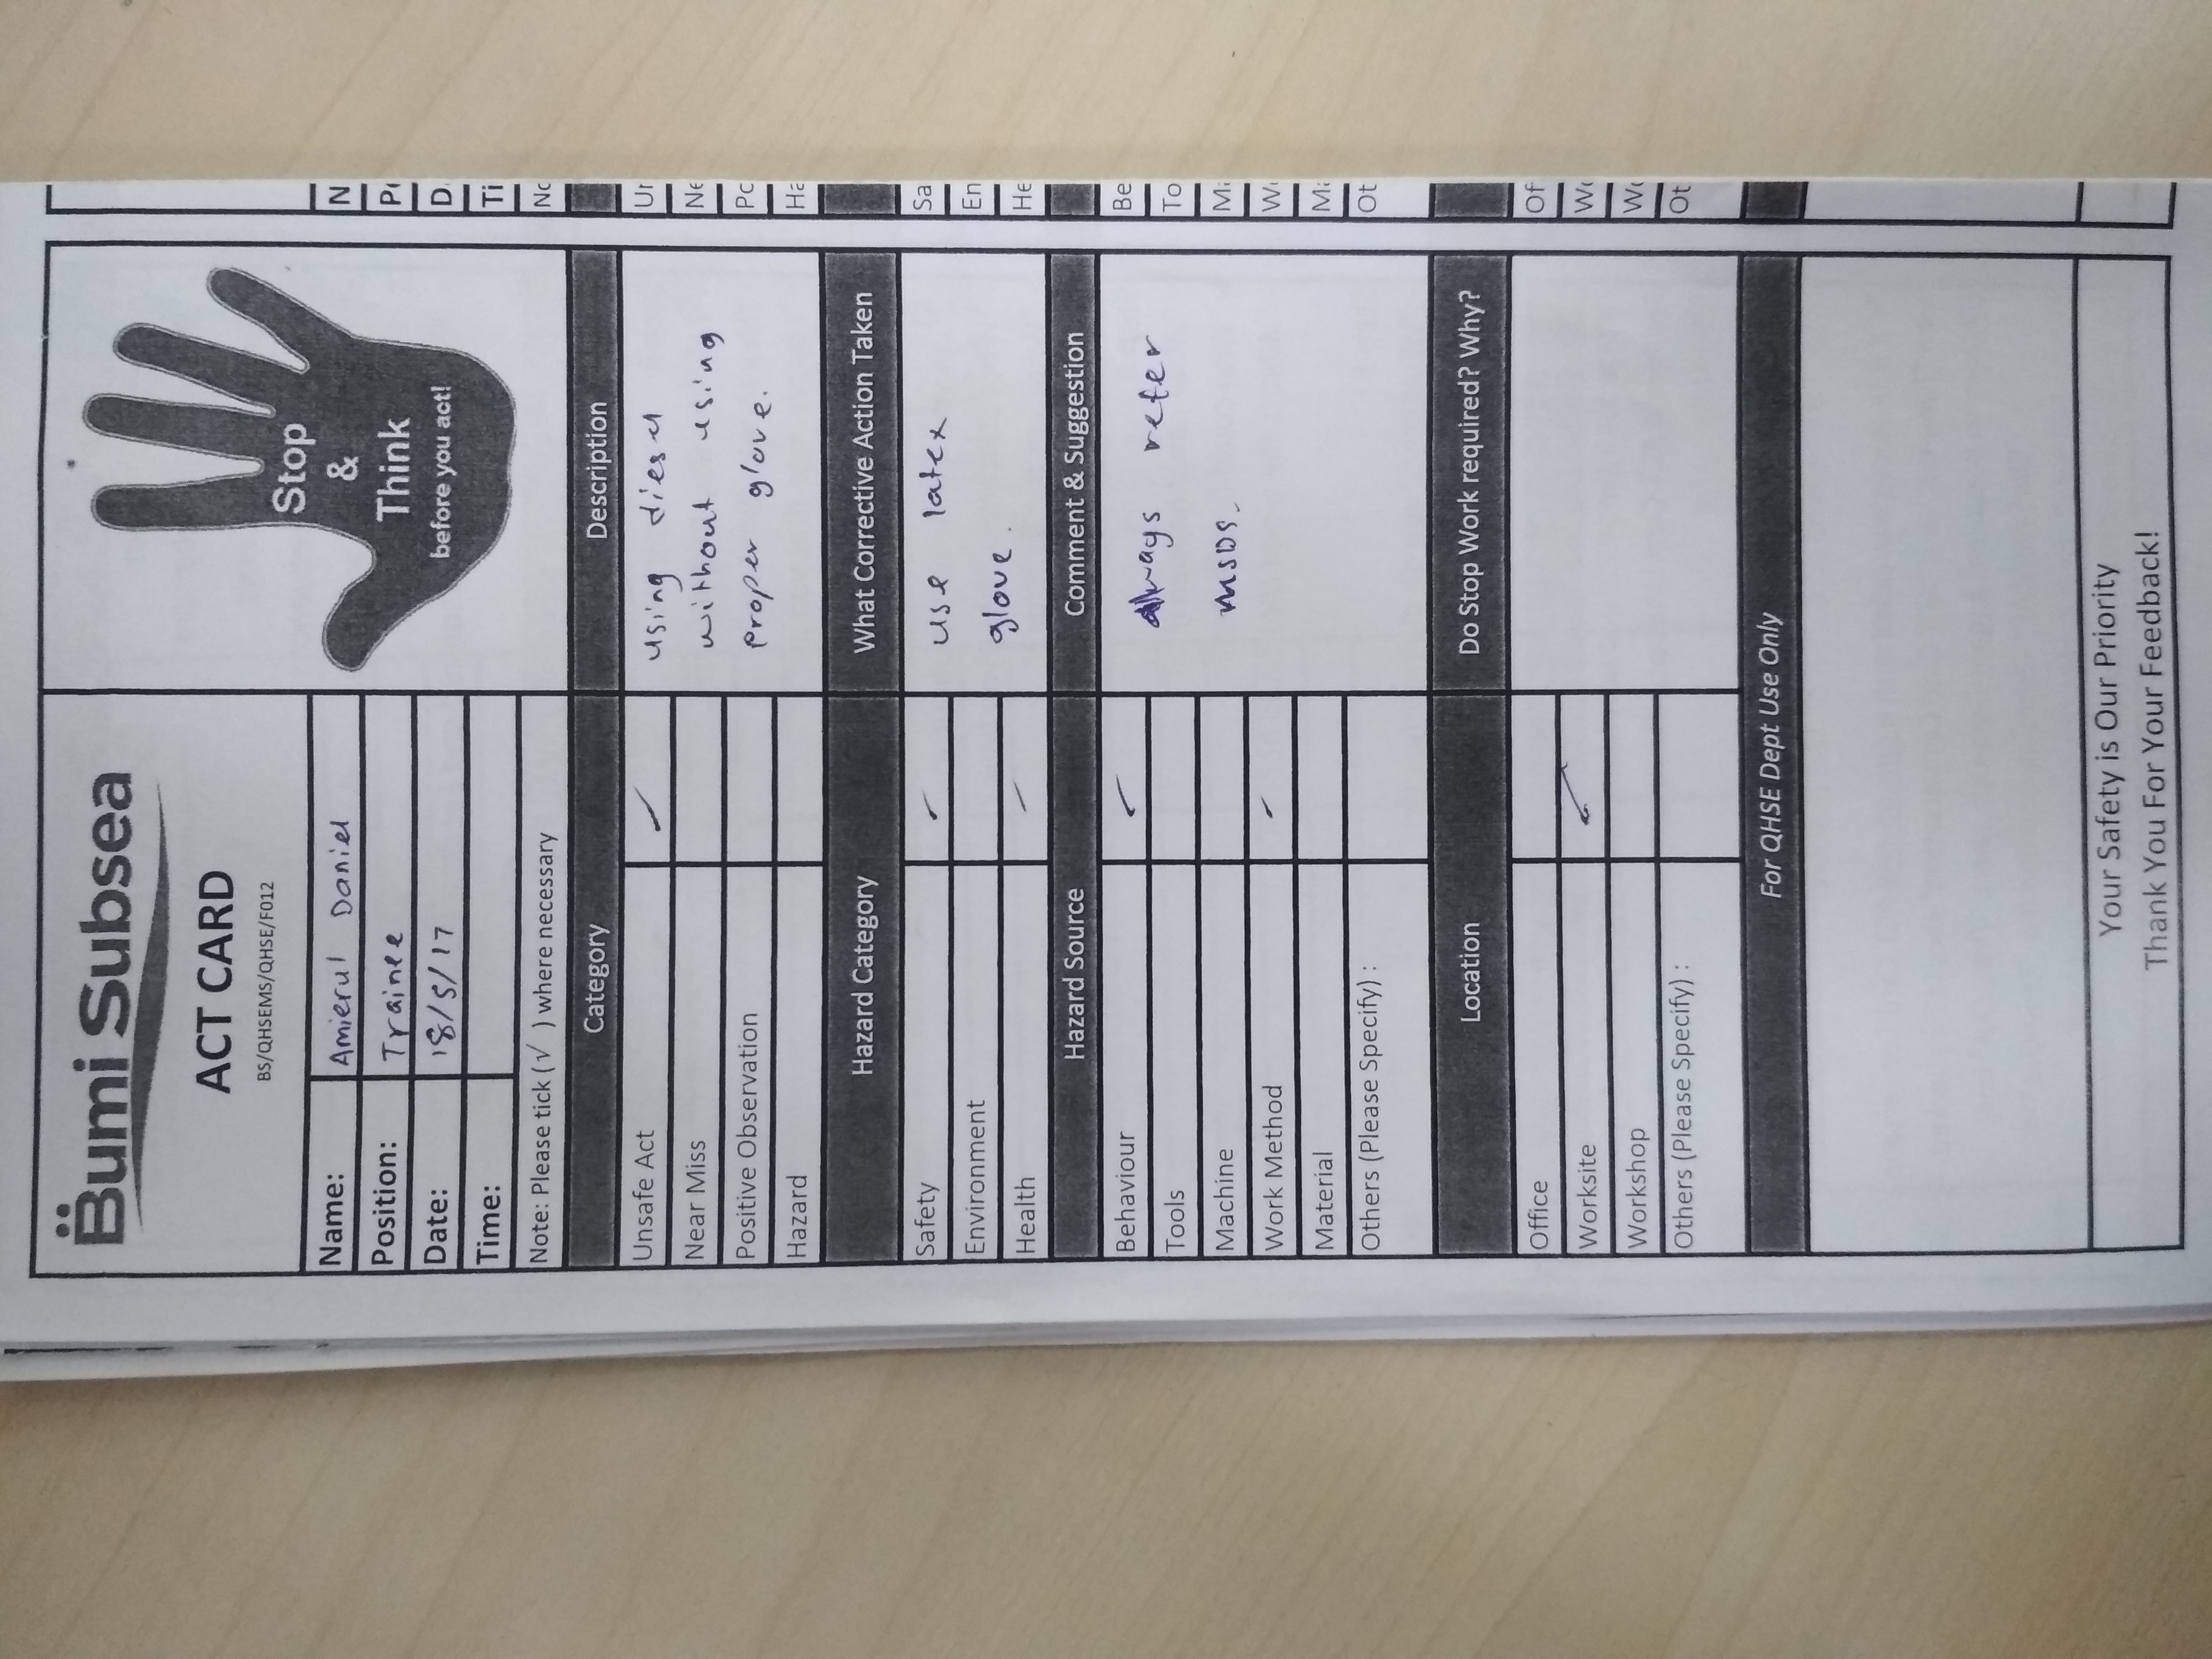 Bumi Subsea
ACT CARD
BS/QHSEMS/QHSE/F012
Stop
&
Think
before you act!
Name: Amierul Daniel
Position: Trainee
Date: 18/5/17
Time:
Note: Please tick (√ ) where necessary
Category Description
Unsafe Act ✓ using diesel
Near Miss without using
Positive Observation proper glove.
Hazard
Hazard Category What Corrective Action Taken
Safety ✓ use latex
Environment
Health ✓ glove.
Hazard Source Comment & Suggestion
Behaviour ✓ always refer
Tools
Machine msds.
Work Method ✓
Material
Others (Please Specify) :
Location Do Stop Work required? Why?
Office
Worksite ✓
Workshop
Others (Please Specify) :
For QHSE Dept Use Only
Your Safety is Our Priority
Thank You For Your Feedback!
N
P
D
Ti
No
Un
Ne
Po
Ha
Sa
En
He
Be
To
Ma
W
Ma
Ot
Of
Wo
Wo
Ot